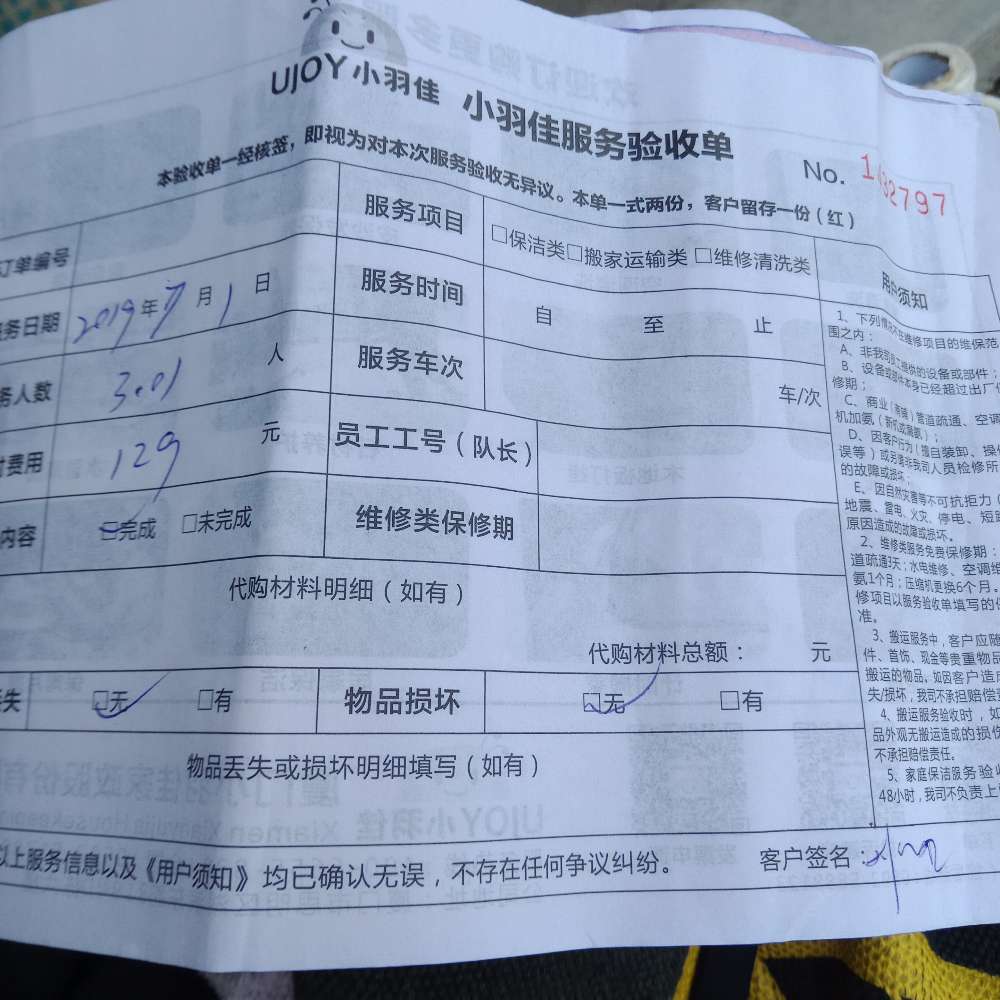 UJOY小羽佳 小羽佳服务验收单
No. 1492797
本验收单一经核签，即视为对本次服务验收无异议。本单一式两份，客户留存一份（红）
订单编号
服务项目 □保洁类□搬家运输类 □维修清洗类
务日期 2019年7月1日
服务时间 自 至 止
务人数 3.01 人
服务车次 车/次
费用 129 元
员工工号（队长）
内容 □完成 □未完成
维修类保修期
代购材料明细（如有）
代购材料总额： 元
失 □无 □有
物品损坏 □无 □有
物品丢失或损坏明细填写（如有）
以上服务信息以及《用户须知》均已确认无误，不存在任何争议纠纷。 客户签名：
用户须知
1、下列情况不在维修项目的维保范
围之内：
A、非我司员工提供的设备或部件；
B、设备或部件本身已经超过出厂
修期；
C、商业（商铺）管道疏通、空调
机加氨（新机或漏氨）；
D、因客户行为（擅自装卸、操
误等）或另请非我司人员检修所
的故障或损坏；
E、因自然灾害等不可抗拒力（
地震、雷电、火灾、停电、短路
原因造成的故障或损坏。
2、维修类服务免费保修期：
道疏通3天；水电维修、空调维
氨1个月；压缩机更换6个月。
修项目以服务验收单填写的
准。
3、搬运服务中，客户应随
件、首饰、现金等贵重物品
搬运的物品，如因客户造成
失/损坏，我司不承担赔偿
4、搬运服务验收时，如
品外观无搬运造成的损伤
不承担赔偿责任。
5、家庭保洁服务验收
48小时，我司不负责上